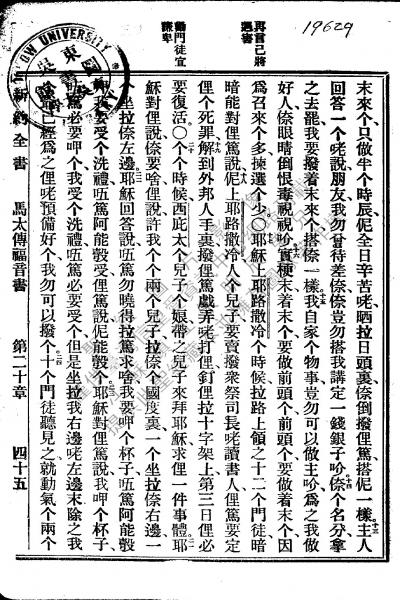 19629
再言己將
遇害
勸門徒宜
謙卑
末來個只做半個時辰伲全日辛苦咾晒拉日頭裏倷倒撥俚篤搭伲一樣主人
回答一個咾說朋友我勿曾待差倷倷豈勿搭我講定一錢銀子吤倷個名分拿
之去罷我要撥着末來個搭倷一樣我自家個物事豈勿可以做主吤爲之我做
好人倷眼睛倒恨毒視視吤實梗末着末個要做前頭個前頭個要做着末個因
爲召來個多揀選個少〇耶穌上耶路撒冷個時候拉路上領之十二個門徒暗
暗能對俚篤說伲上耶路撒冷人個兒子要賣撥衆祭司長咾讀書人俚篤要定
俚個死罪解到外邦人手裏撥俚篤戲弄咾打俚釘俚拉十字架上第三日俚必
要復活〇個個時候西庇太個兒子個娘帶之兒子來拜耶穌求俚一件事體耶
穌對俚說倷要啥俚說許我個個兩個兒子拉倷個國度裏一個坐拉倷右邊一
個坐拉倷左邊耶穌回答說㑚篤勿曉得拉篤求啥我要呷個杯子㑚篤阿能彀
呷我要受個洗禮㑚篤阿能彀受俚篤說伲能彀耶穌對俚篤說我呷個杯子
㑚篤必要呷個我受個洗禮㑚篤必要受個但是坐拉我右邊咾左邊末除之我
已經爲之俚咾預備好個我勿可以撥個十個門徒聽見之就動氣個兩個
新約全書 馬太傳福音書 第二十章 四十五